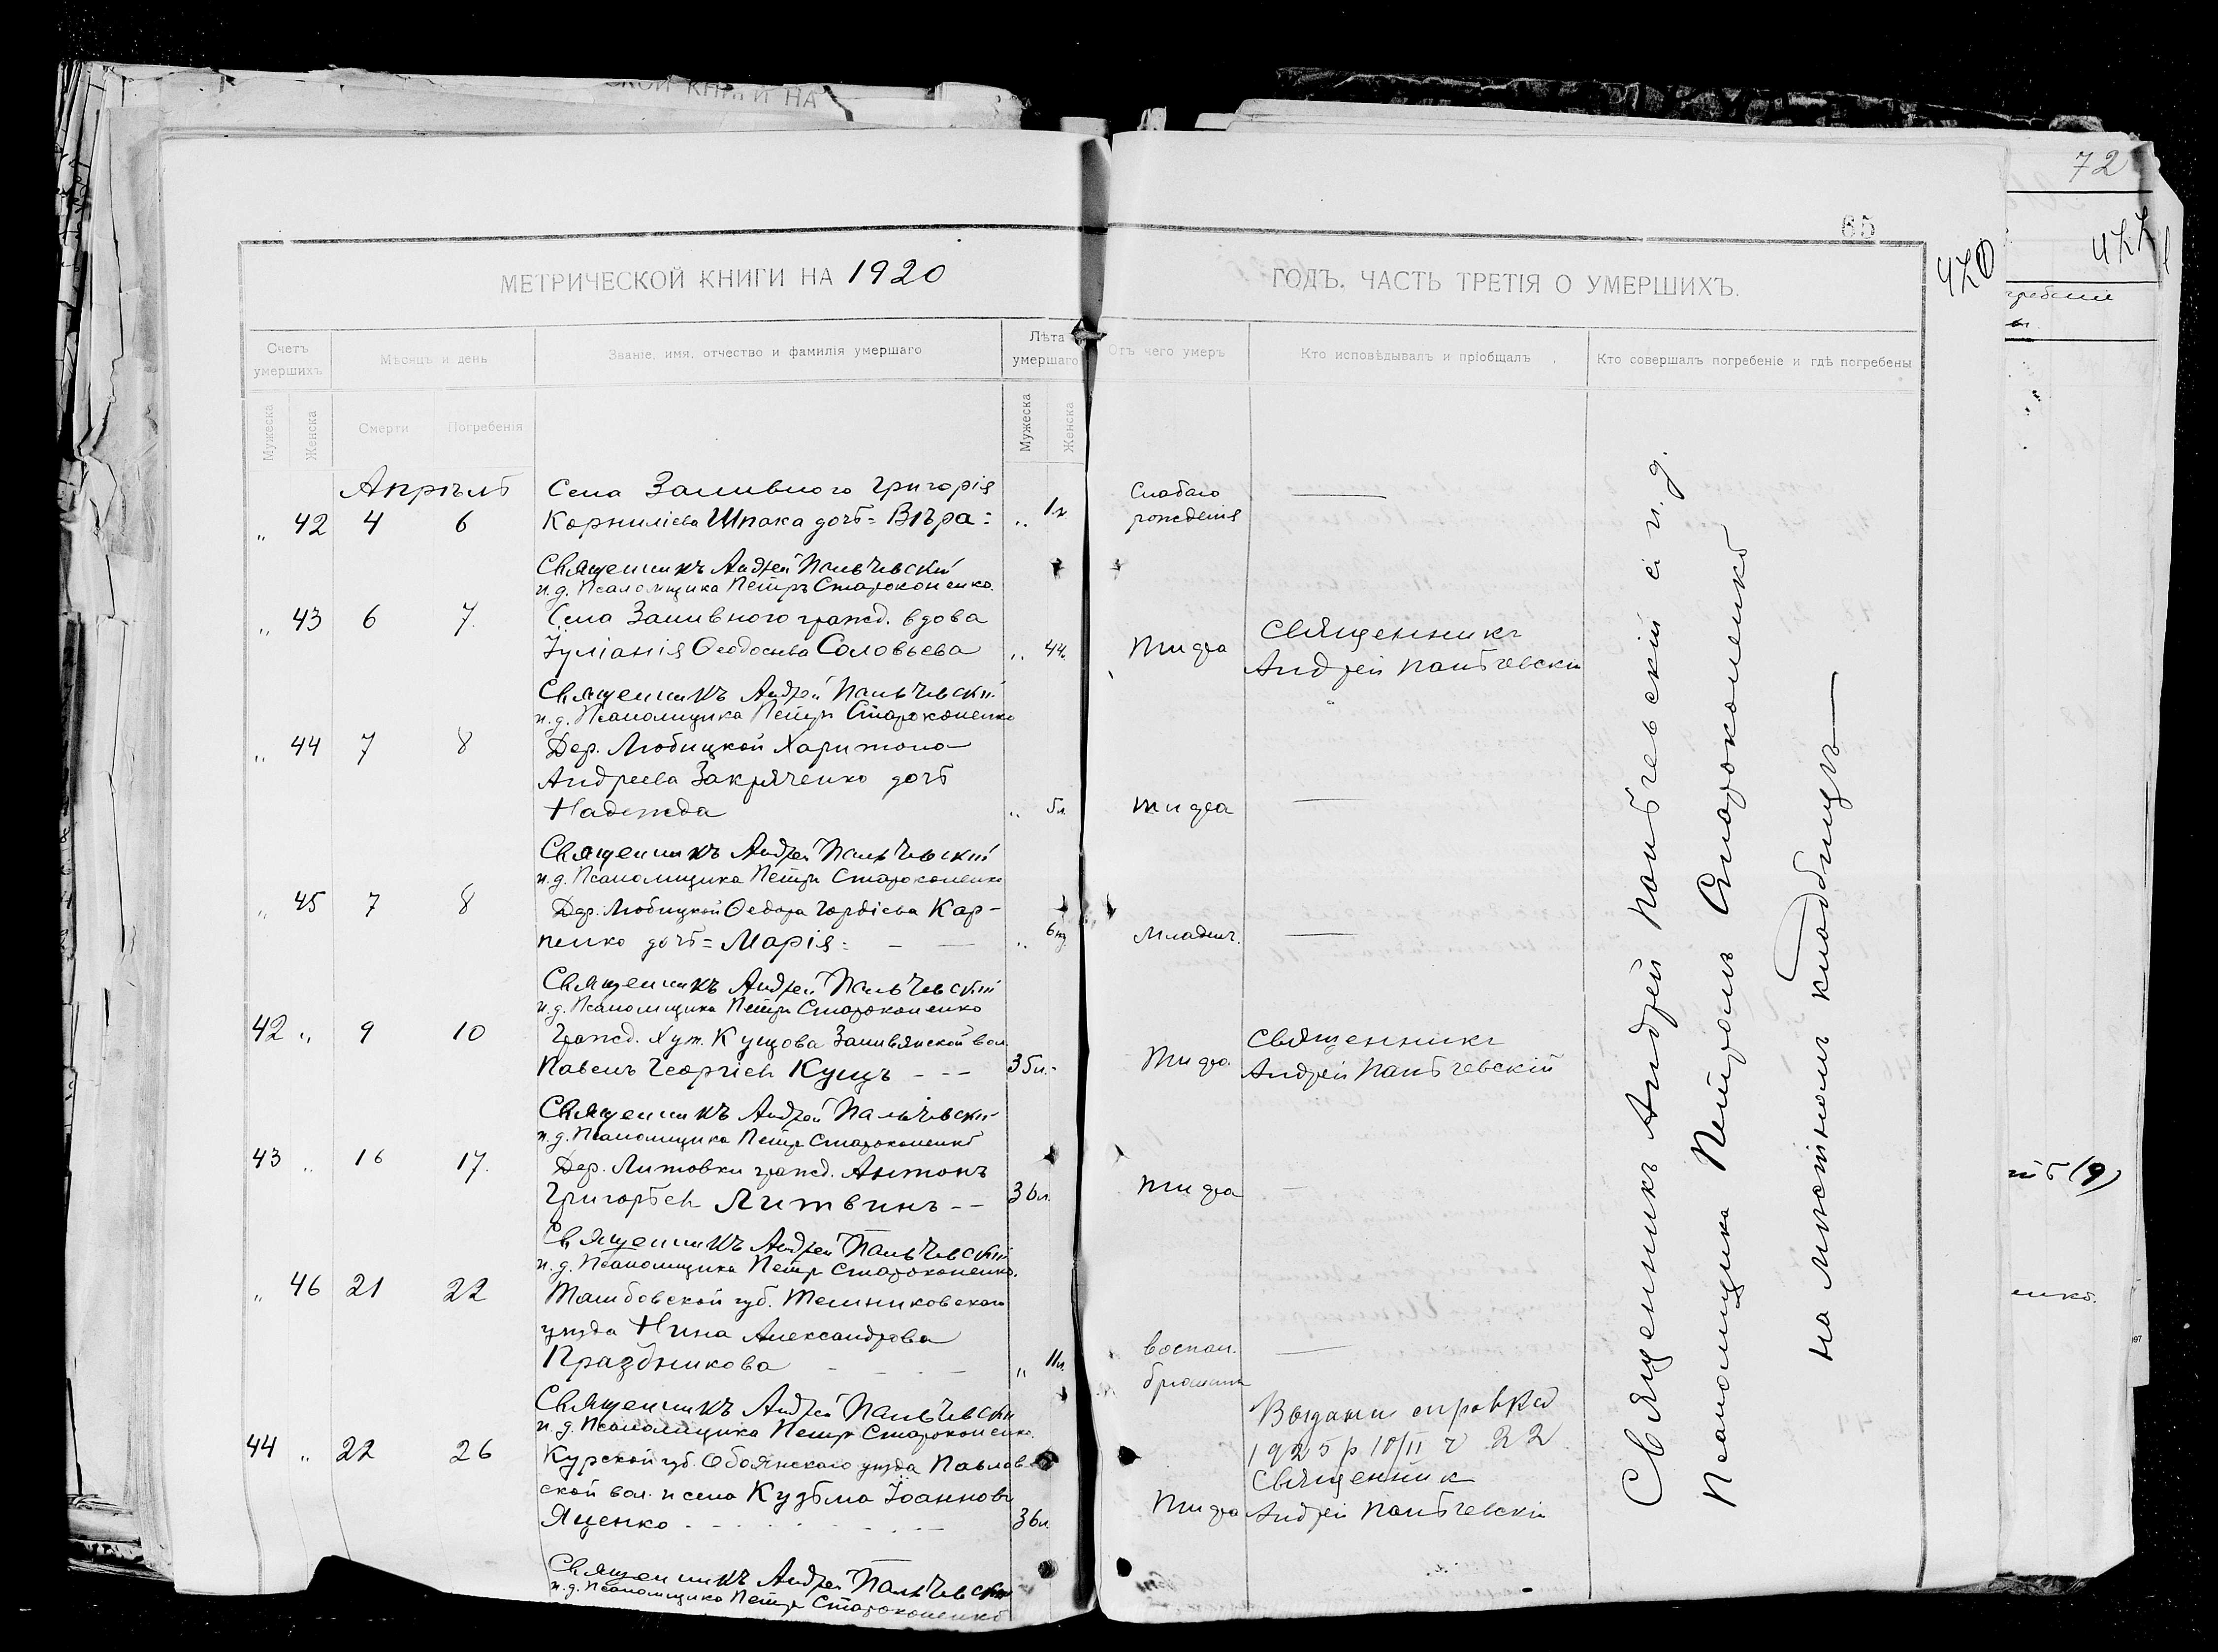 СКОЙ КНИГИ НА
72
65
420
422
МЕТРИЧЕСКОЙ КНИГИ НА 1920
ГОДЪ. ЧАСТЬ ТРЕТІЯ О УМЕРШИХЪ.
Счетъ умершихъ
Мѣсяцъ и день
Званіе, имя, отчество и фамилія умершаго
Лѣта умершаго
Отъ чего умеръ
Кто исповѣдывалъ и пріобщалъ
Кто совершалъ погребеніе и гдѣ погребены
Мужеска
Женска
Смерти
Погребенія
Мужеска
Женска
Апрѣль
Села Заливного Григорія
Слабаго
„ 42 4 6 Корниліева Шпака дочь = Вѣра = „
рожденія
Священникъ Андрей Пальчевскій
и. д. Псаломщика Петръ Староконенко.
„ 43 6 7. Села Заливного гражд. вдова
Іуліанія Ѳеодосіева Соловьева „ 44. Тифа
Священникъ
Андрей Пальчевскій
Священникъ Андрей Пальчевскій
и. д. Псаломщика Петръ Староконенко
„ 44 7 8 Дер. Любицкой Харитона
Андреева Закряченко дочь
Надежда „ 5л. тифа —
Священникъ Андрей Пальчевскій
и. д. Псаломщика Петръ Староконенко
„ 45 7 8 Дер. Любицкой Ѳедора Гордіева Кар-
пенко дочь = Марія = — — „ 6 нд. Младенч. —
Священникъ Андрей Пальчевскій
и. д. Псаломщика Петръ Староконенко
42 „ 9 10 Гражд. Хут. Кущова Заливянской вол.
Павелъ Георгіев Кущъ - - - 35л. - Тифа.
Священникъ
Андрей Пальчевскій
Священникъ Андрей Пальчевскій
и. д. Псаломщика Петръ Староконенко
43 „ 16 17. Дер. Литовки гражд. Антонъ
Григорьев Литвинъ - - 36л. Тифа —
Священникъ Андрей Пальчевскій
и. д. Псаломщика Петръ Староконенко.
„ 46 21 22 Тамбовской губ. Темниковскаго
уѣзда Нина Александрова
Праздникова - - — „ 11л. воспал. —
брюшины
Священникъ Андрей Пальчевскій
и. д. Псаломщика Петръ Староконенко.
Выдана справка
1925 р 10/II ч 22
44 „ 22 26 Курской губ. Обоянскаго уѣзда Павлов-
ской вол. и села Кузьма Іоаннов
Яценко - - - 36л. Тифа
Священник
Андрей Пальчевскій
Священникъ Андрей Пальчевскій
и. д. Псаломщика Петръ Староконенко
Священникъ Андрей Пальчевскій с и. д.
Псаломщика Петромъ Староконенко
на мѣстномъ кладбищѣ —